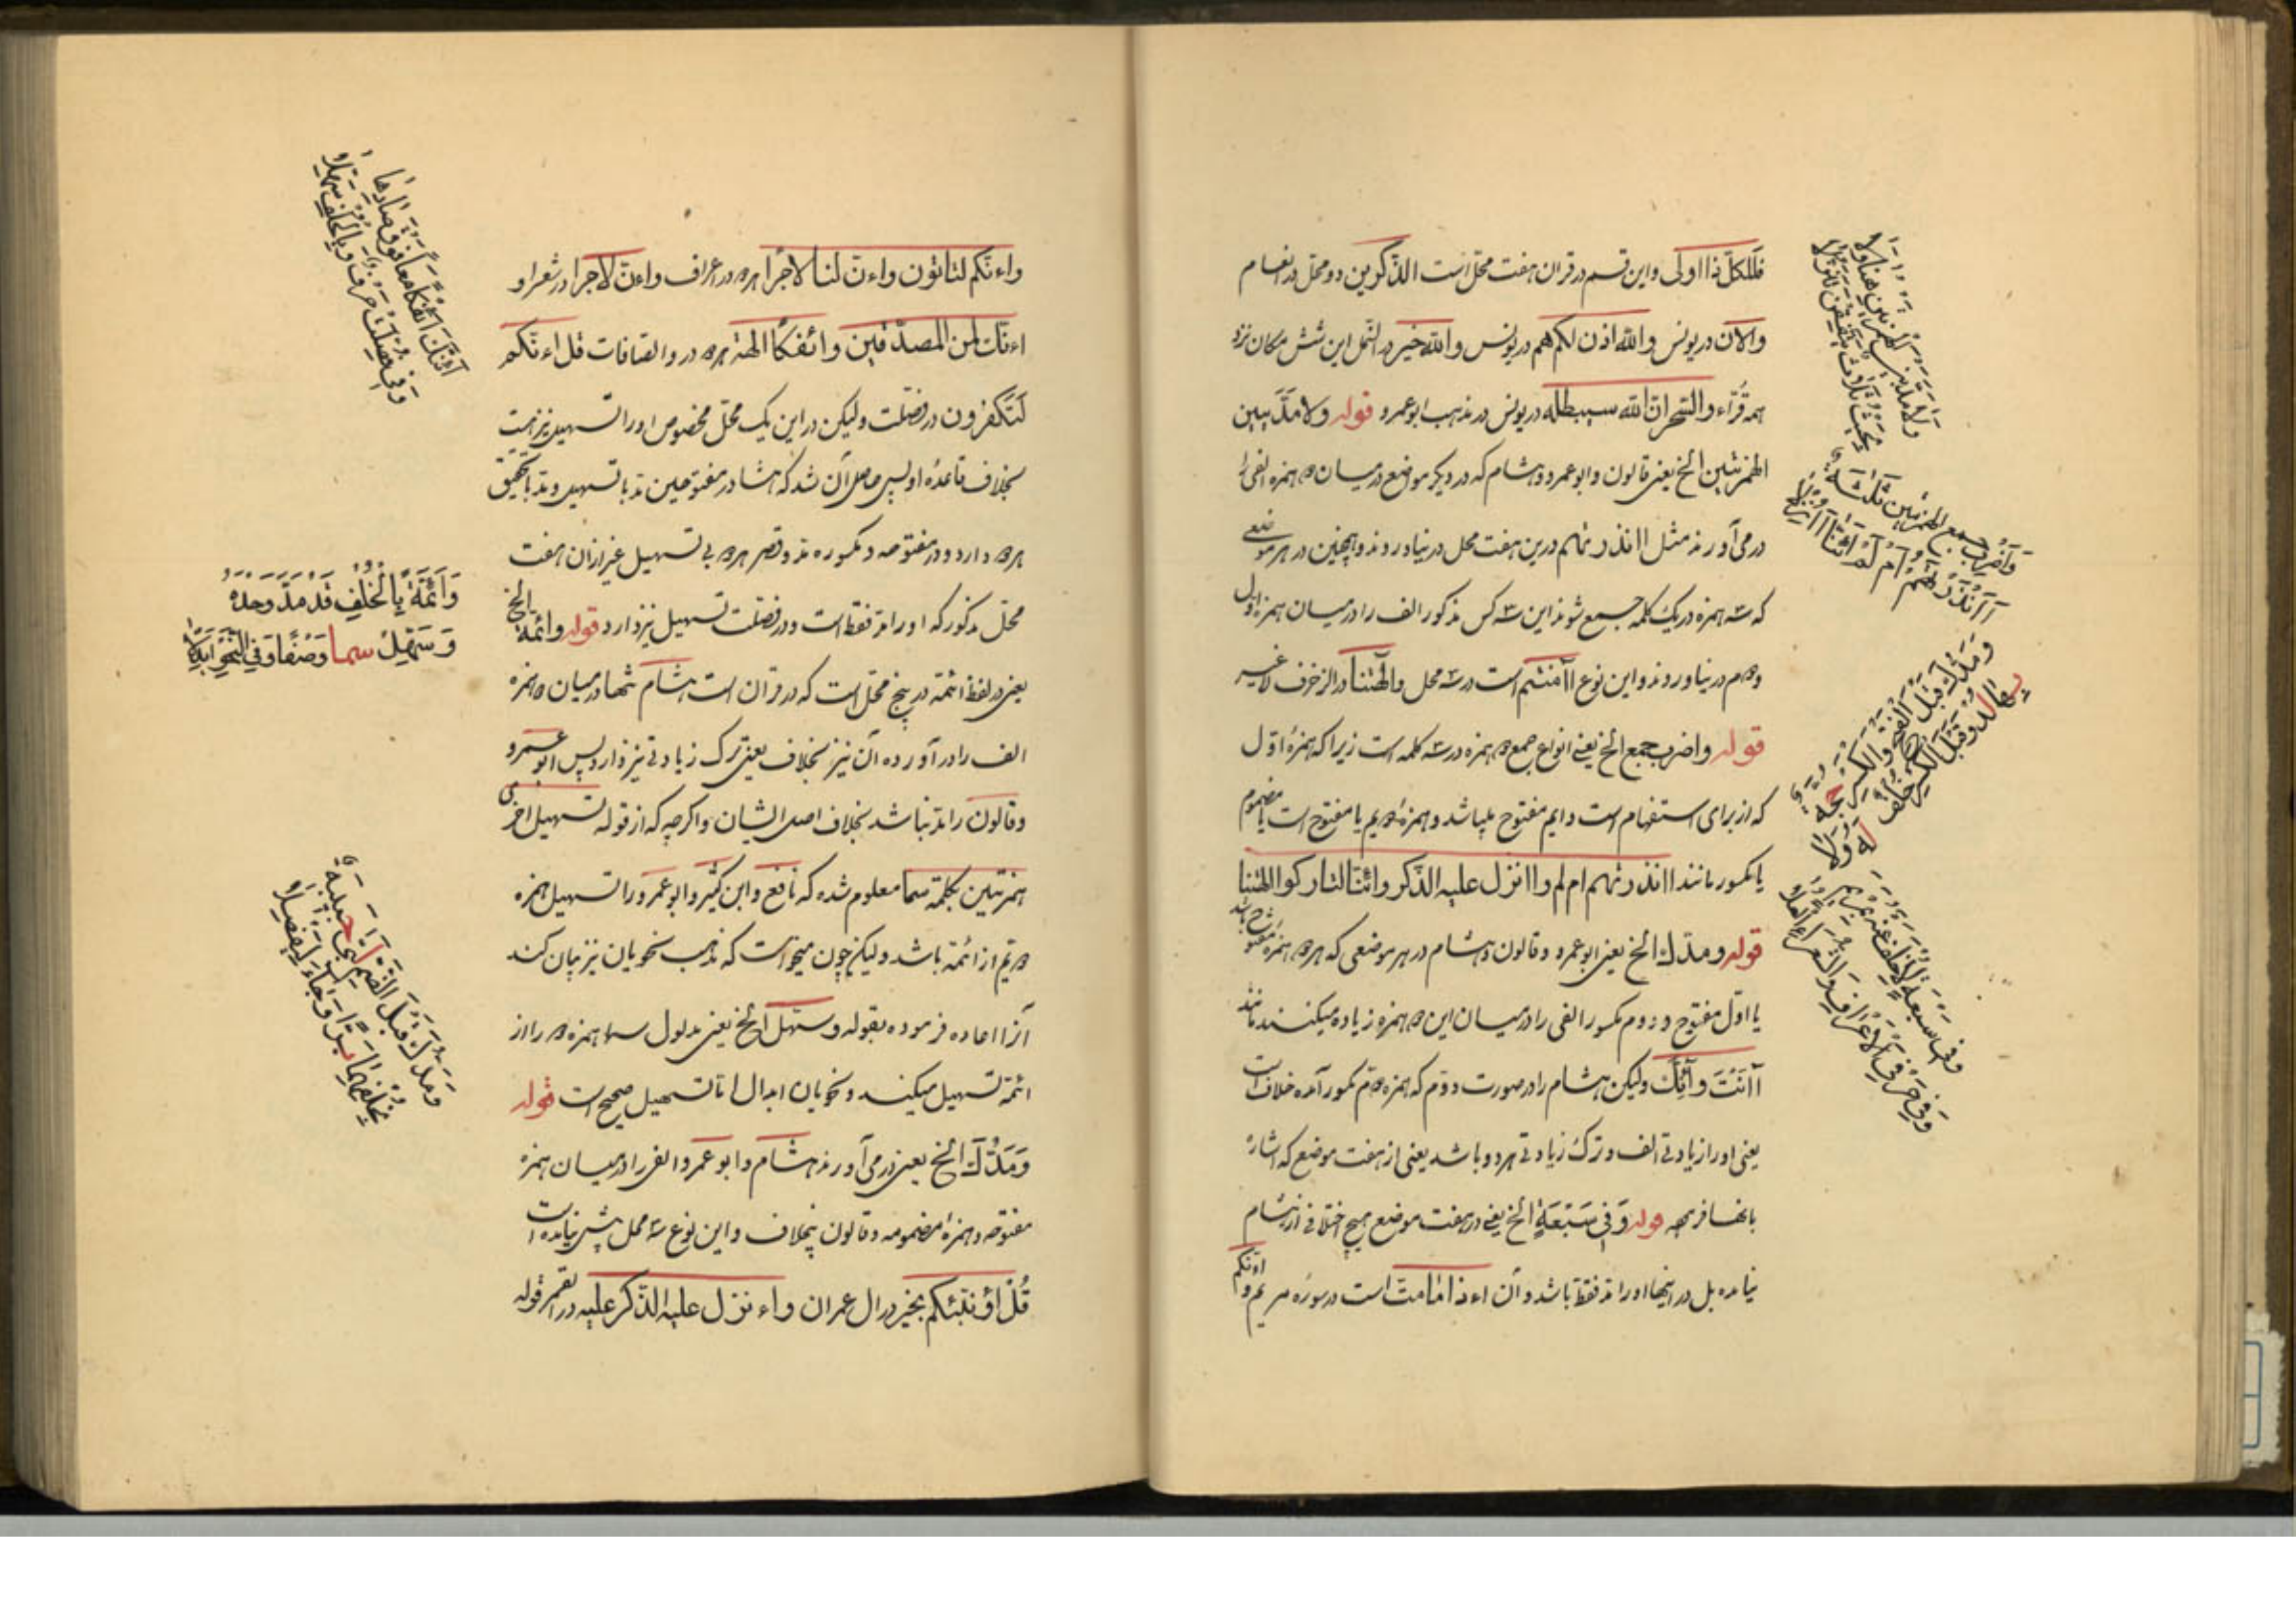 فللکل ذا اولی واین قسم در قران هفت محل است الذکرین دو محل در انعام
والان در یونس والله اذن لکم هم در یونس والله خیر در النمل این شش مکان نزد
همه قراء والسحر ان الله سیبطله در یونس در مذهب ابوعمرو قوله ولا مدّ بین
الهمزتین الخ یعنی قالون وابوعمرو وهشام که در دیگر موضع درمیان دو همزه الفی را
در می آورند مثل ااانذرتهم درین هفت محل در نیاوردند وهمچنین در هر موضعی
که سه همزه در یک کلمه جمع شوند این سه کس مذکور الف را درمیان همزه اول
ودوم در نیاوردند واین نوع أآمنتم است در سه محل وآلهتنا در الزخرف لاغیر
قوله واضرب جمع الخ یعنی انواع جمع دو همزه در سه کلمه است زیرا که همزهٔ اوّل
که از برای استفهام است دایم مفتوح میباشد وهمزهٔ دویم یا مفتوح است یا مضموم
یا مکسور مانند اانذرتهم ام لم واانزل علیه الذکر وائنا لتارکوا الهتنا
قوله ومدّک الخ یعنی ابوعمرو وقالون وهشام در هر موضعی که هر دو همزه مفتوح باشد
یا اوّل مفتوح ودوم مکسور الفی را درمیان این دو همزه زیاده میکنند مانند
آانت وآئنک ولیکن هشام را در صورت دوّم که همزه دوّم مکسور آمده خلاف است
یعنی او را زیادتی الف وترک زیادتی هر دو باشد یعنی از هفت موضع که اشاره
بانها فرمود قوله وَفِی سَبْعَةٍ الخ یعنی در هفت موضع هیچ اختلافی از هشام
نیامده بل در اینها او را مدّ فقط باشد وآن اءذا مامت است در سورهٔ مریم و ائنکم
وَلَا مَدَّ بَیْنَ الْهَمْزَتَیْنِ هُنَا وَلَا
بِحَیْثُ ثَلَاثٌ یَتَّفِقْنَ تَنَزُّلَا
وَأَضْرُبُ جَمْعِ الْهَمْزَتَیْنِ ثَلَاثَةٌ
أَأَنْذَرْتَهُمْ أَمْ لَمْ أَئِنَّا أَأُنْزِلَا
وَمَدُّکَ قَبْلَ الْفَتْحِ وَالْکَسْرِ حُجَّةٌ
بِهَا لُذْ وَقَبْلَ الْکَسْرِ خُلْفٌ لَهُ وَلَا
وَفِی سَبْعَةٍ لَا خُلْفَ عَنْهُ بِمَرْیَمَ
وَفِی حَرْفَیِ الْأَعْرَافِ وَالشُّعَرَا الْعُلَا
واءنکم لتاتون واءن لنا لاجرا هر دو در اعراف واءن لاجرا در شعرا و
اءنک لمن المصدقین وائفکا الهة هر دو در والصافات قل اءنکم
لتکفرون در فصلت ولیکن در این یک محل مخصوص او را تسهیل نیز هست
بخلاف قاعدهٔ او پس حاصل آن شد که هشام در مفتوحین مد با تسهیل ومد با تحقیق
هر دو دارد ودر مفتوحه ومکسوره مد وقصر هر دو بی تسهیل غیر ازان هفت
محل مذکور که او را مدّ فقط است ودر فصلت تسهیل نیز دارد قوله وائمة الخ
یعنی در لفظ ائمة در پنج محل است که در قران است هشام تنها درمیان دو همزه
الف را درآورده آن نیز بخلاف یعنی ترک زیادتی نیز دارد پس ابوعمرو
وقالون را مد نباشد بخلاف اصل ایشان واگرچه که از قوله تسهیل اخری
همزتین بکلمة سما معلوم شده که نافع وابن کثیر وابوعمرو را تسهیل همزه
دویم از ائمة باشد ولیکن چون میخواست که مذهب نحویان نیز بیان کند
آنرا اعاده فرموده بقوله وسهّل الخ یعنی مدلول سما همزه دو را از
ائمة تسهیل میکنند ونحویان ابدال اما تسهیل صحیح است قوله
وَمَدُّکَ الخ یعنی در می آورند هشام وابوعمرو الف را درمیان همزه
مفتوحه وهمزهٔ مضمومه وقالون بیخلاف واین نوع سه محل بیش نیامده است
قُلْ اؤنبئکم بخیر در ال عمران واءنزل علیه الذکر علیه در القمر قوله
أَئِنَّکَ آئِفْکًا مَعًا فَوْقَ صَادِهَا
وَفِی فُصِّلَتْ حَرْفٌ وَبِالْخُلْفِ سُهِّلَا
وَآئِمَّةً بِالْخُلْفِ قَدْ مَدَّ وَحْدَهُ
وَسَهِّلْ سما وَصْفًا وَفِی النَّحْوِ أُبْدِلَا
وَمَدُّکَ قَبْلَ الضَّمِّ لَبَّی حَبِیبَهُ
بِخُلْفِهِمَا بَرًّا وَجَاءَ لِیَفْصِلَا